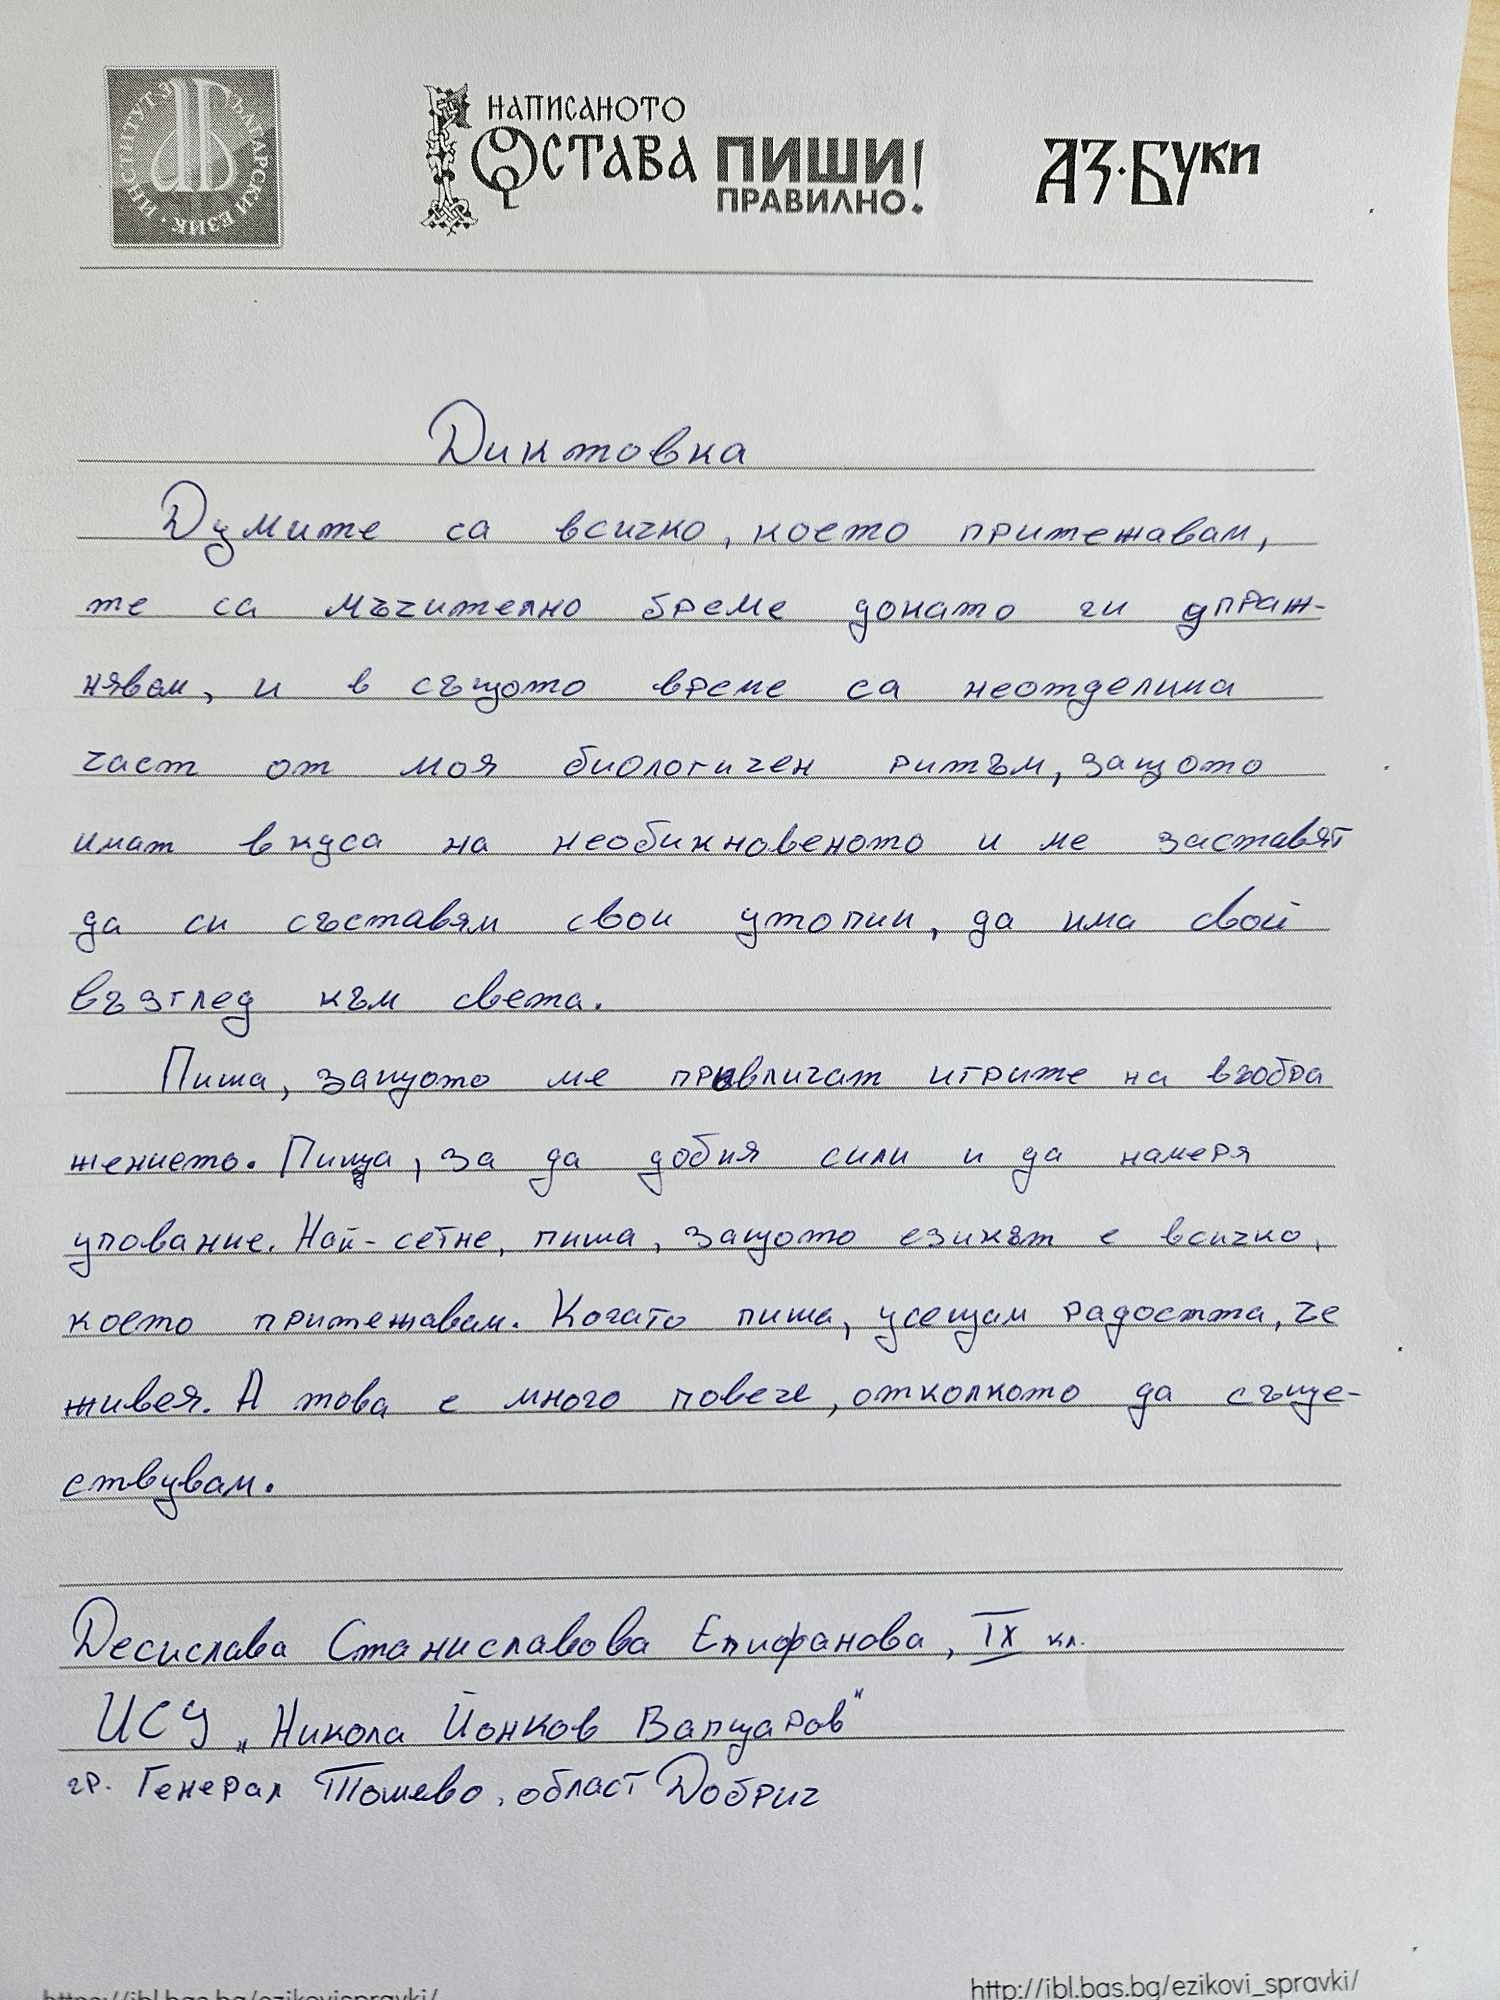 ИНСТИТУТ ЗА БЪЛГАРСКИ ЕЗИК
НАПИСАНОТО
ОСТАВА ПИШИ
ПРАВИЛНО!
АЗ·БУКИ
Диктовка
Думите са всичко, което притежавам,
те са мъчително бреме докато ги упраж-
нявам, и в същото време са неотделима
част от моя биологичен ритъм, защото
имат вкуса на необикновеното и ме заставят
да си съставям свои утопии, да има свой
възглед към света.
Пиша, защото ме привличат игрите на въобра
жението. Пиша, за да добия сили и да намеря
упование. Най-сетне, пиша, защото езикът е всичко,
което притежавам. Когато пиша, усещам радостта, че
живея. А това е много повече, отколкото да съще-
ствувам.
Десислава Станиславова Епифанова, IX кл.
ИСУ „Никола Йонков Вапцаров"
гр. Генерал Тошево, област Добрич
http://ibl.bas.bg/ezikovi_spravki/